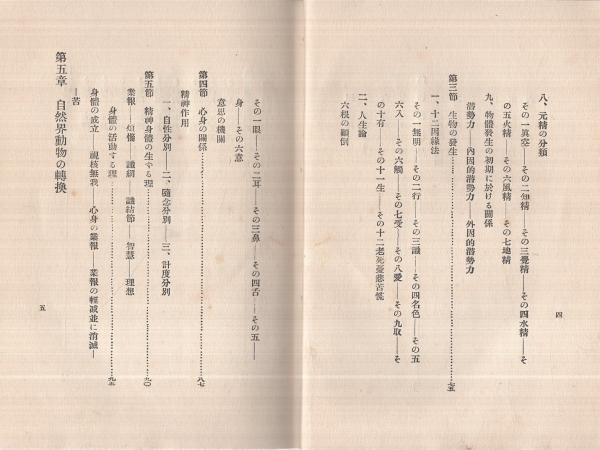 八、元精の分類
その一眞空――その二知精――その三覺精――その四水精――そ
の五火精――その六風精――その七地精
九、物體發生の初期に於ける關係
潜勢力――內因的潜勢力――外因的潜勢力
第三節 生物の發生……七五
一、十二因緣法
その一無明――その二行――その三識――その四名色――その五
六入――その六觸――その七受――その八愛――その九取――そ
の十有――その十一生――その十二老死憂悲苦惱
二、人生論
六根の顚倒
四
その一眼――その二耳――その三鼻――その四舌――その五――
身――その六意
意思の機關
第四節 心身の關係……八七
精神作用
一、自性分別――二、隨念分別――三、計度分別
第五節 精神身體の生ずる理……九〇
業報――煩惱――識綱――識結節――智慧――理想
身體の活動する理……九五
身體の成立――視核無我――心身の業報――業報の輕減並に消滅―
―苦
第五章 自然界動物の轉換
五